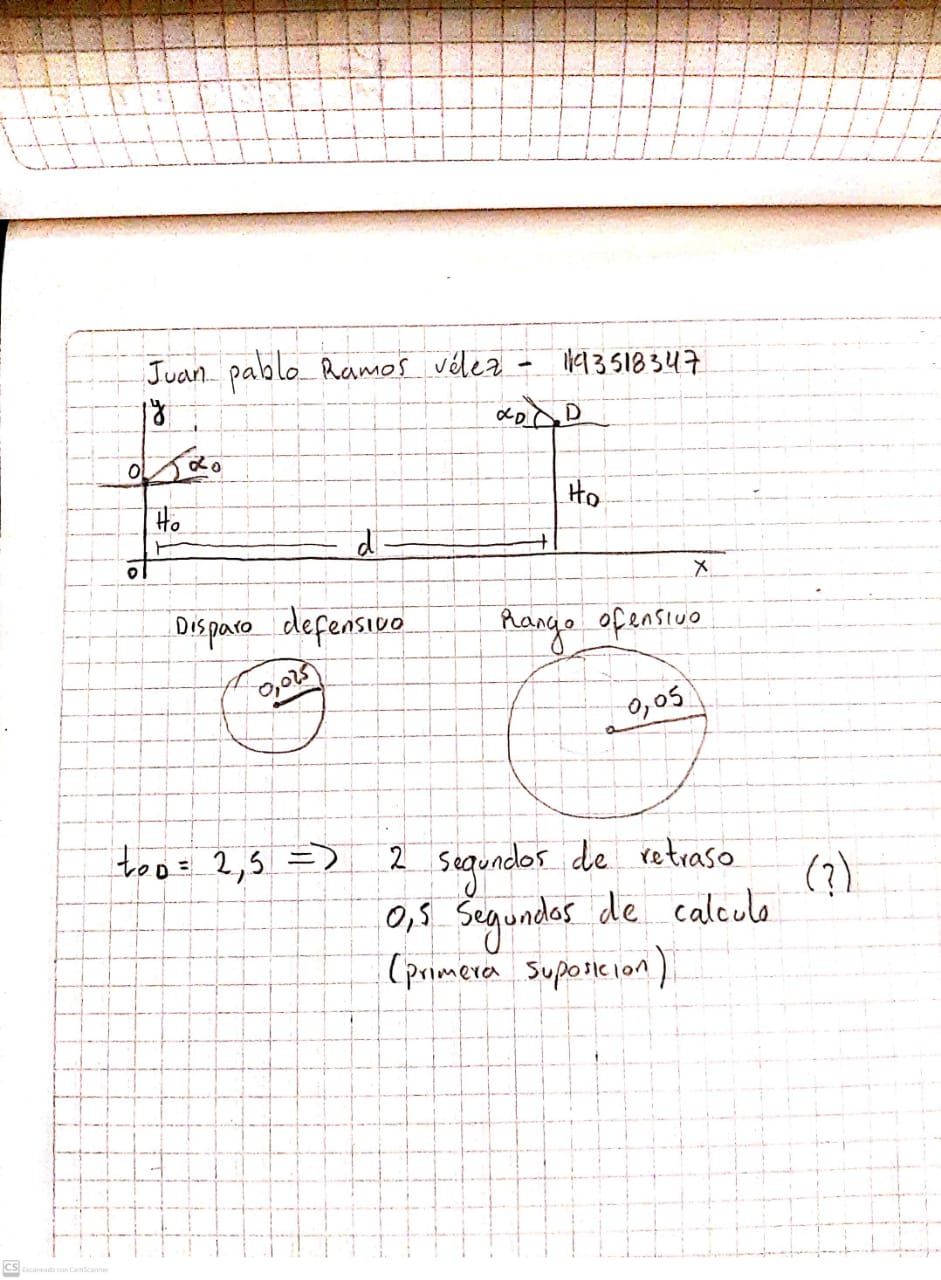 Juan pablo Ramos vélez - 1193518347
y
αD D
O αo
Ho
HD
d
0
x
Disparo defensivo
Rango ofensivo
0,025
0,05
toD = 2,5 => 2 segundos de retraso
(?)
0,5 segundos de calculo
(primera suposicion)
CS Escaneado con CamScanner